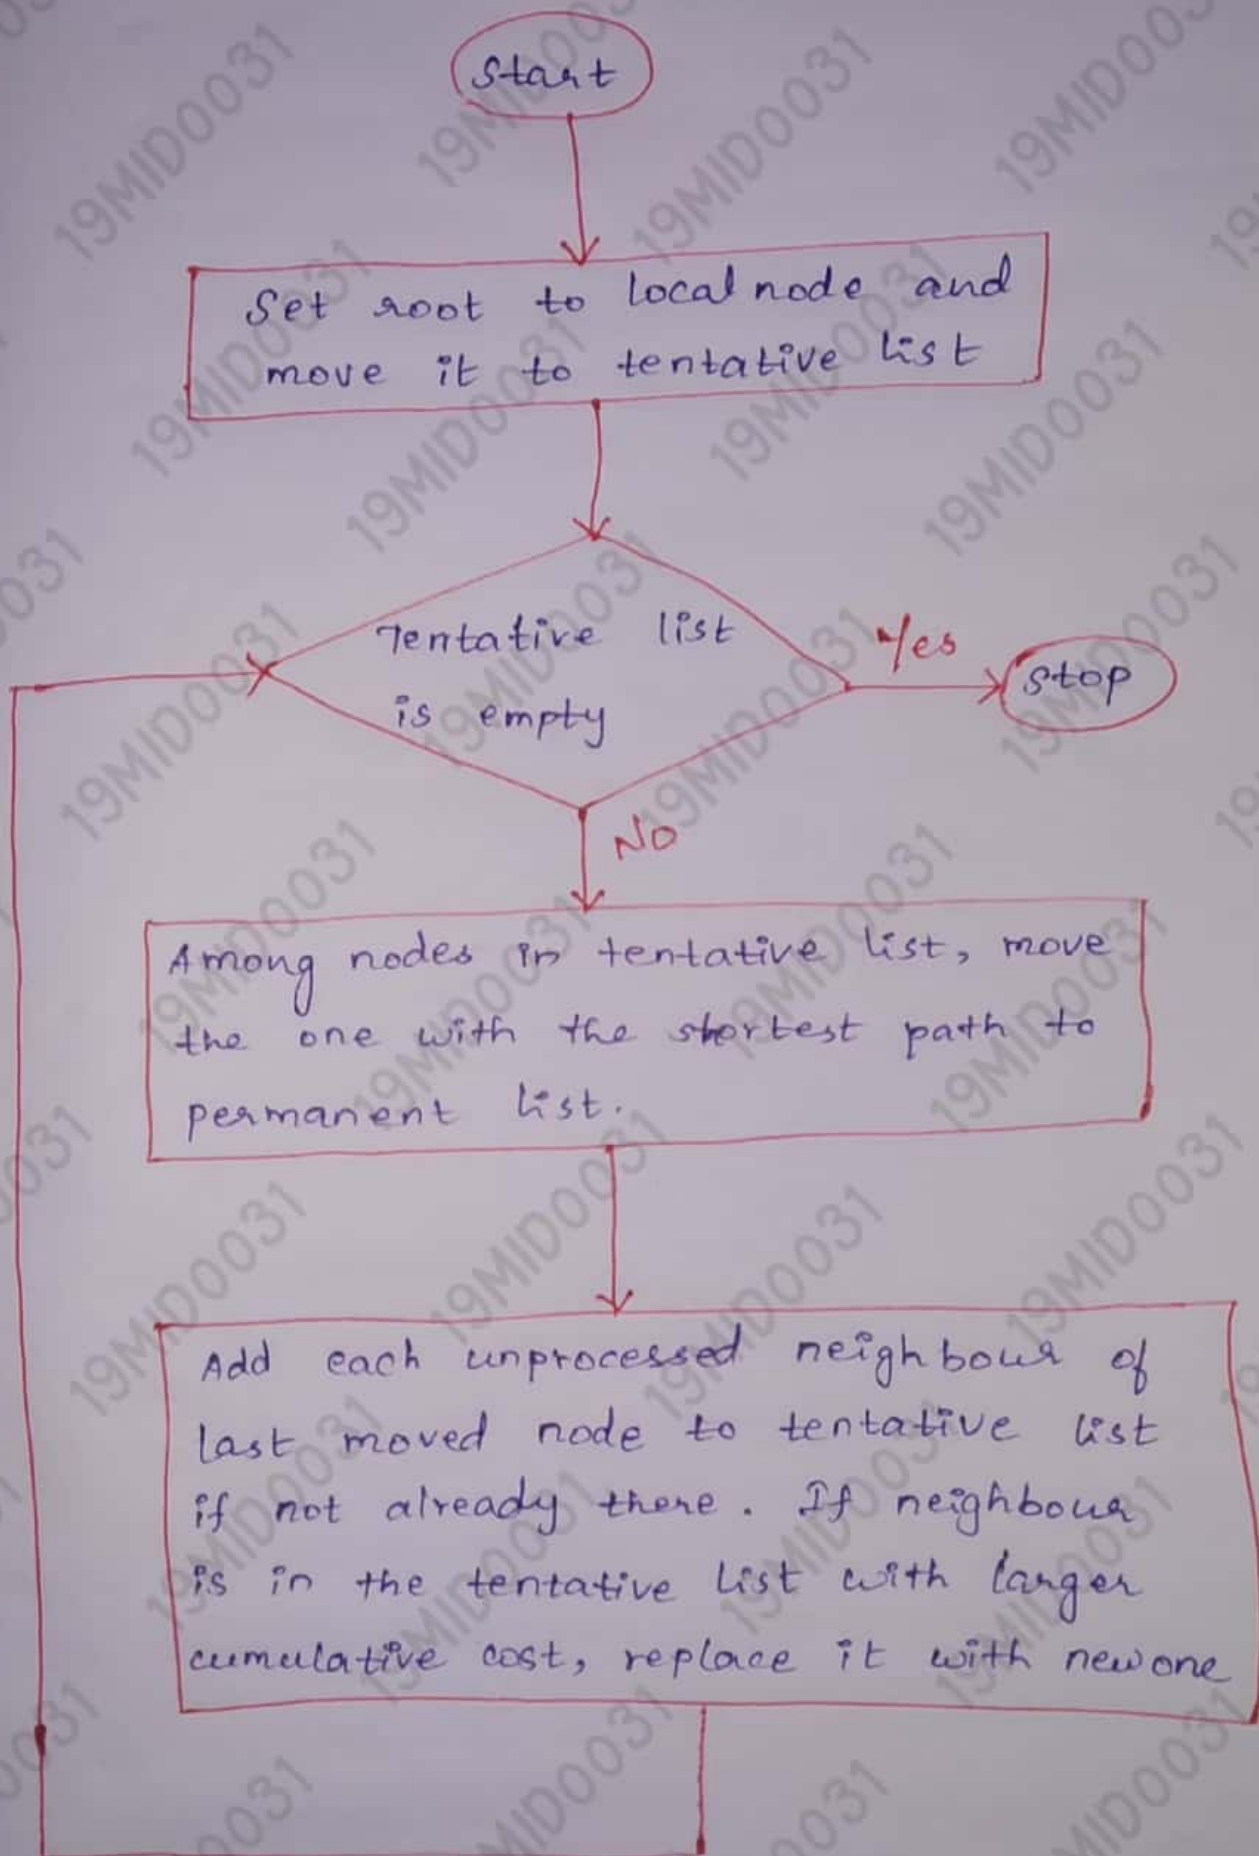 Start
Set root to local node and
move it to tentative list
Tentative list
is empty
Yes
Stop
NO
Among nodes in tentative list, move
the one with the shortest path to
permanent list.
Add each unprocessed neighbour of
last moved node to tentative list
if not already there. If neighbour
is in the tentative list with larger
cumulative cost, replace it with new one
19MID0031